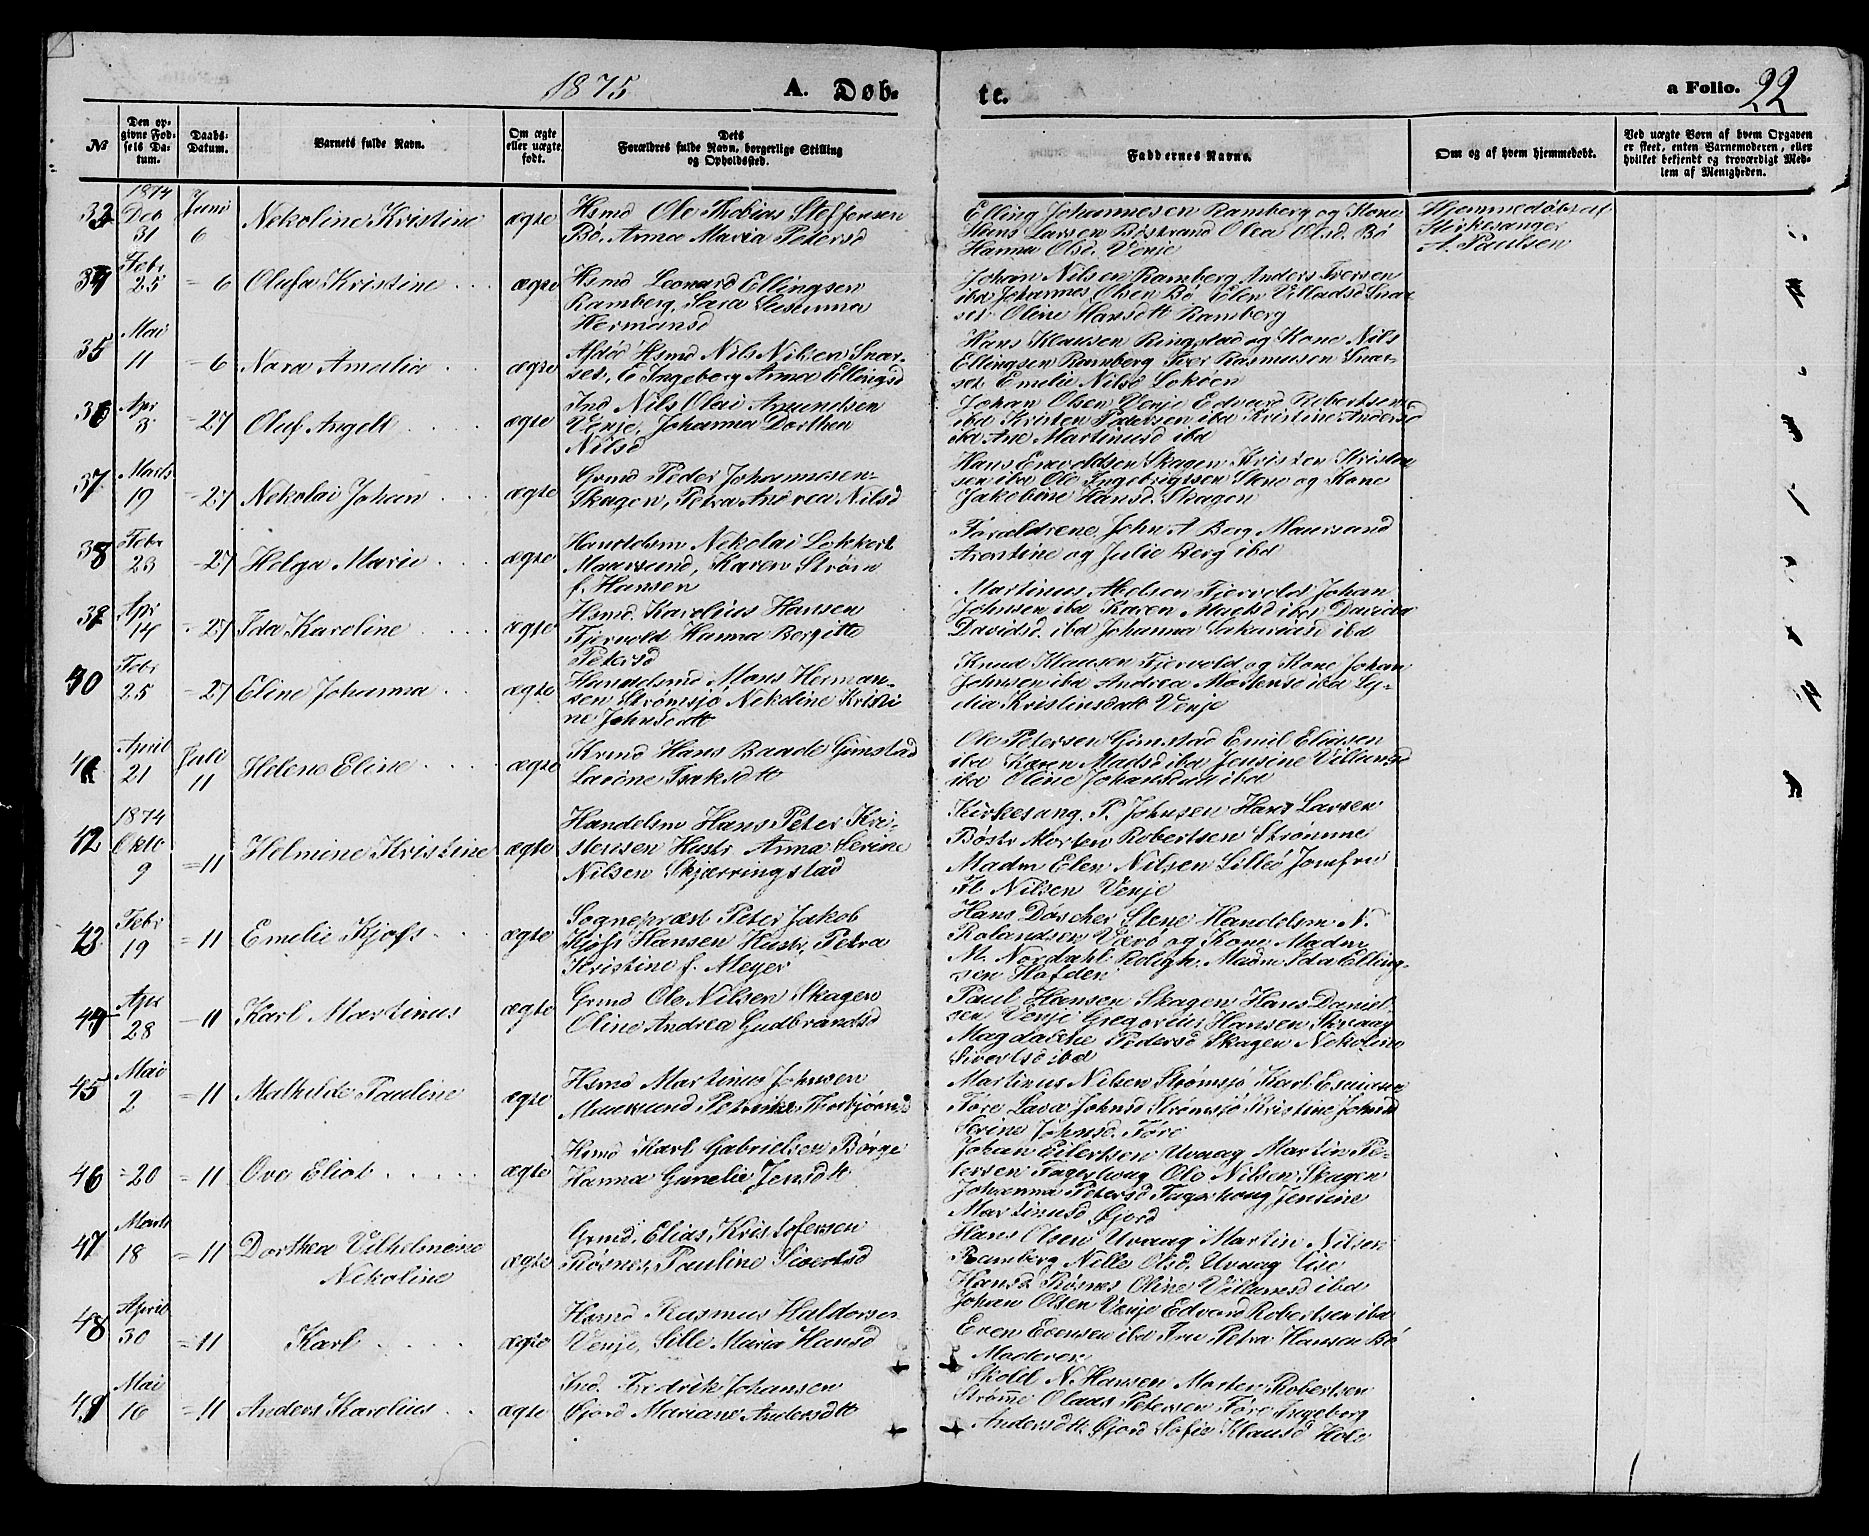 1875 A. Døb- te. a Folio. 22
№
Den op-
givne Fød-
sels Da-
tum.
Daabs-
Datum.
Barnets fulde Navn.
Om ægte
eller uægte
født.
Dets
Forældres fulde Navn, borgerlige Stilling
og Opholdssted.
Faddernes Navne.
Om og af hvem hjemmedøbt.
Ved uægte Børn af hvem Opgaven
er skeet, enten Barnemoderen, eller
hvilket bekjendt og troværdigt Med-
lem af Menigheden.
33 1874 Deb 31 Juni 6 Nekoline Kristine ægte
Hsmd Ole Thobias Steffensen
Bø, Anna Maria Petersd
Elling Johannesen Ramberg og Kone
Hans Larsen Bøstrand Olea Olsd. Bø
Hanna Olsd. Venje
Hjemmedøbt af
Kirkesanger
A. Paulsen
34 Febr 25 = 6 Olufa Kristine ægte
Hsmd Leonard Ellingsen
Ramberg, Sara Susanna
Hermansd
Johan Nilsen Ramberg Anders Iversen
ibd Johannes Olsen Bø Elen Villadsd Snar-
set Oline Hansdtt Ramberg
35 Mai 11 = 6 Nora Amalia ægte
Afdød Hsmd Nils Nilsen Snar-
set, E Ingeberg Anna Ellingsd
Hans Klausen Ringstad og Kone Nils
Ellingsen Ramberg Iver Rasmussen Snar-
set Emelie Nilsd Lokøen
36 Apr 3 = 27 Oluf Angell ægte
Ind Nils Olai Amundsen
Venje, Johanna Dorthea
Nilsd
Johan Olsen Venje Edvard Robertsen
ibd Kristen Pedersen ibd Kristine Andersd
ibd Ane Martinusd ibd
37 Marts 19 = 27 Nekolai Johan ægte
Grmd Peder Johannesen
Skagen, Petra Andrea Nilsd
Hans Enevoldsen Skagen Kristen Kristen
sen ibd Ole Ingebrigtsen Stene og Kone
Jakobine Hansd. Skagen
38 Febr 23 = 27 Helga Marie ægte
Handelsm Nekolai Lokkert
Maarsund, Karen Strøm
f. Hansen
Forældrene John A Berg Maursund
Arentine og Julie Berg ibd
39 Apr 14 = 27 Ida Karoline ægte
Hsmd. Karelius Hansen
Fjervold Hanna Bergitte
Petersd
Martinus Abelsen Fjervold Johan
Johnsen ibd Karen Madsd ibd Davida
Davidsd. ibd Johanna Sakariasd ibd
40 Febr 25 = 27 Eline Johanna ægte
Handelsmd Mons Herman-
sen Strømsjø Nekoline Kristi
ne Johnsdatt
Knud Klausen Fjervold og Kone Johan
Johnsen ibd Andrea Mortensd ibd Ly-
dia Kristinsdatt Venje
41 April 21 Juli 11 Helene Eline ægte
Krmd Hans Baade Gimstad
Lavine Isaksdtt
Ole Petersen Gimstad Emil Eliasen
ibd Karen Madsd ibd Jensine Villumsd
ibd Oline Johansdatt ibd
42 1874 Oktb 9 = 11 Helmine Kristine ægte
Handelsm Hans Peter Kri-
stensen Hustr Anna Serine
Nilsen Skjærringstad
Kirkesang. P. Johnsen Hans Larsen
Bøstr Morten Robertsen Strømme
Madm Elen Nilsen Lilleø Jomfru
H. Nilsen Venje
43 Febr 19 = 11 Emelie Kjøfs ægte
Sognepræst Peter Jakob
Kjøfs Hansen Hustr. Petra
Kristine f. Meyer
Hans Døscher Stene Handelsm N.
Rolandsen Værø og Kone Madm
M. Nordahl Roligh. Madm Ida Elling-
sen Hofden
44 Apr 28 = 11 Karl Martinus ægte
Grmd Ole Nilsen Skagen
Oline Andrea Gudbrandsd
Paul Hansen Skagen Hans Daniel-
sen Venje Gregorius Hansen Skvaag
Magdalene Pedersd Skagen Nekoline
Sivertsd ibd
45 Mai 2 = 11 Mathilde Pauline ægte
Hsmd Martinus Johnsen
Maursund Petrikke Thorbjørnsd
Martinus Nilsen Strømsjø Karl Esaiasen
Føre Lava Johnsd Strømsjø Kristine Johnsd
Serine Johnsd. Føre
46 = 20 = 11 Ove Eliot ægte
Hsmd Karl Gabrielsen Børge
Hanna Gurelie Jensdtt
Johan Eilertsen Uvaag Martin Pe-
tersen Fagerhoug Ole Nilsen Skagen
Johanna Petersd Fagerhoug Jenine
Martinusd Øjord
47 Marts 18 = 11 Dorthea Vilhelmine
Nekoline ægte
Grmd. Elias Kristofersen
Røsnes, Pauline Sivertsd
Hans Olsen Uvaag Martin Nilsen
Ramberg Nille Olsd. Uvaag Lise
Hansd. Røsnes Oline Villumsd ibd
48 April 30 = 11 Karl ægte
Hsmd Rasmus Haldorsen
Venje, Sille Maria Hansd
Johan Olsen Venje Edvard Robertsen ibd
Even Evensen ibd Fru Petra Hansen Bø
Moderen
49 Mai 16 = 11 Anders Karelius ægte
Ind. Fredrik Johansen
Øjord Mariane Andersdtt
Skold N. Hansen Morten Robertsen
Strømme Olaus Petersen Føre Ingeborg
Andersdtt Øjord Sofie Klausd Hole